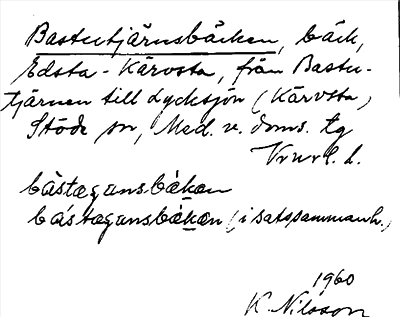 Bastutjärnsbäcken, bäck,
Edsta-Kärvsta, från Bastu-
tjärnen till Lycksjön (Kärvsta)
Stöde sn, Med. v. doms. tg
Vnrl. l.
bástægansbèkæn
bástægansbèkæn (i satssammanh.)
1960
K. Nilsson